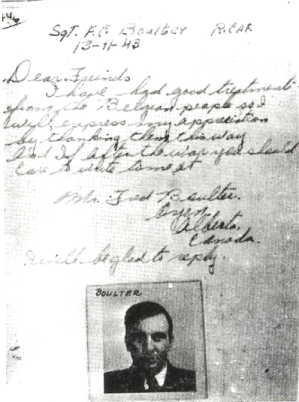 Sgt. F.C. Boulter R.C.A.F.
13-11-43
Dear Friends
I have had good treatment
among the Belgian people so I
will express my appreciation
by thanking them this way
And if after the war you should
care to write to me at
Mr. Fred Boulter.
Oyen,
Alberta,
Canada.
I will be glad to reply.
BOULTER